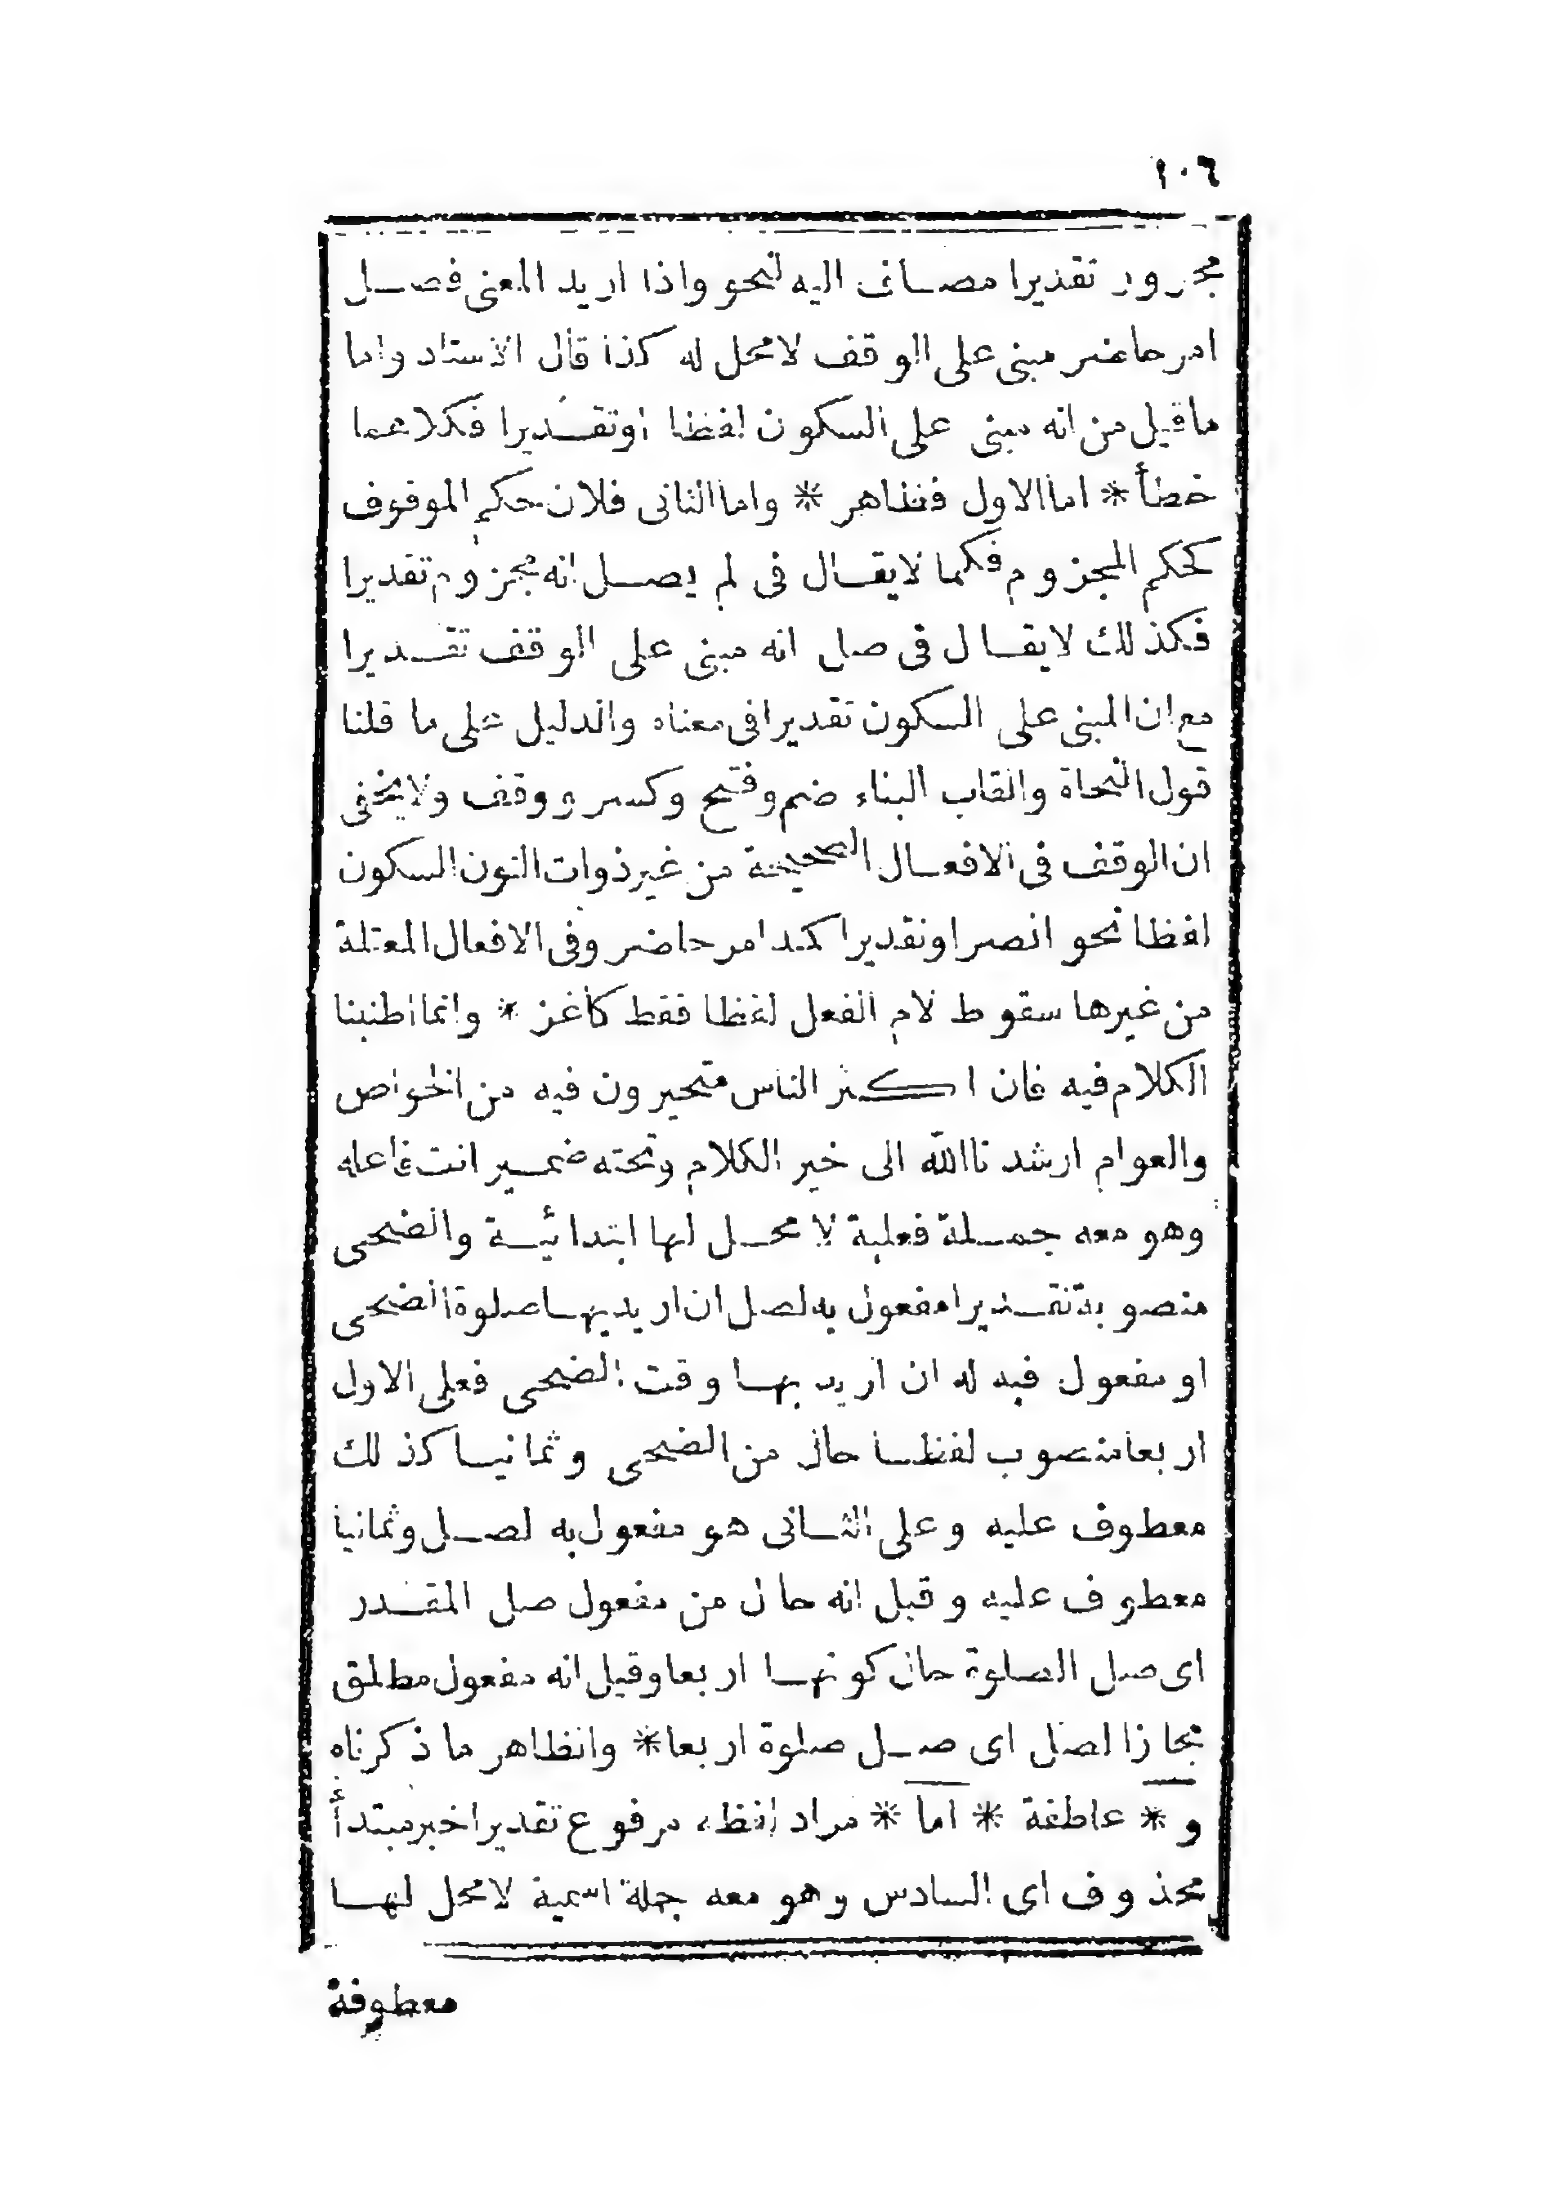 ١٠٦
مجرور تقديرا مضاف اليه لنحو واذا اريد المعنى فصل
امر حاضر مبنى على الوقف لا محل له كذا قال الاستاد واما
ما قيل من انه مبنى على السكون لفظا اوتقديرا فكلاهما
خطأ * اما الاول فظاهر * واما الثانى فلان حكم الموقوف
كحكم المجزوم فكما لا يقال فى لم يصل انه مجزوم تقديرا
فكذلك لا يقال فى صل انه مبنى على الوقف تقديرا
مع ان المبنى على السكون تقديرا فى معناه والدليل على ما قلنا
قول النحاة والقاب البناء ضم وفتح وكسر ووقف ولا يخفى
ان الوقف فى الافعال الصحيحة من غير ذوات النون السكون
لفظا نحو انصر اوتقديرا كمد امر حاضر وفى الافعال المعتلة
من غيرها سقوط لام الفعل لفظا فقط كاغز * وانما اطنبنا
الكلام فيه فان اكثر الناس متحيرون فيه من الخواص
والعوام ارشدنا الله الى خير الكلام وتحته ضمير انت فاعله
وهو معه جملة فعلية لا محل لها ابتدائية والضحى
منصوبة تقديرا مفعول به لصل ان اريد بها صلوة الضحى
او مفعول فيه له ان اريد بها وقت الضحى فعلى الاول
اربعا منصوب لفظا حال من الضحى وثمانيا كذلك
معطوف عليه وعلى الثانى هو مفعول به لصل وثمانيا
معطوف عليه وقيل انه حال من مفعول صل المقدر
اى صل الصلوة حال كونها اربعا وقيل انه مفعول مطلق
مجازا لصل اى صل صلوة اربعا * والظاهر ما ذكرناه
و * عاطفة * اما * مراد لفظه مرفوع تقديرا خبر مبتدأ
محذوف اى السادس وهو معه جملة اسمية لا محل لها
معطوفة